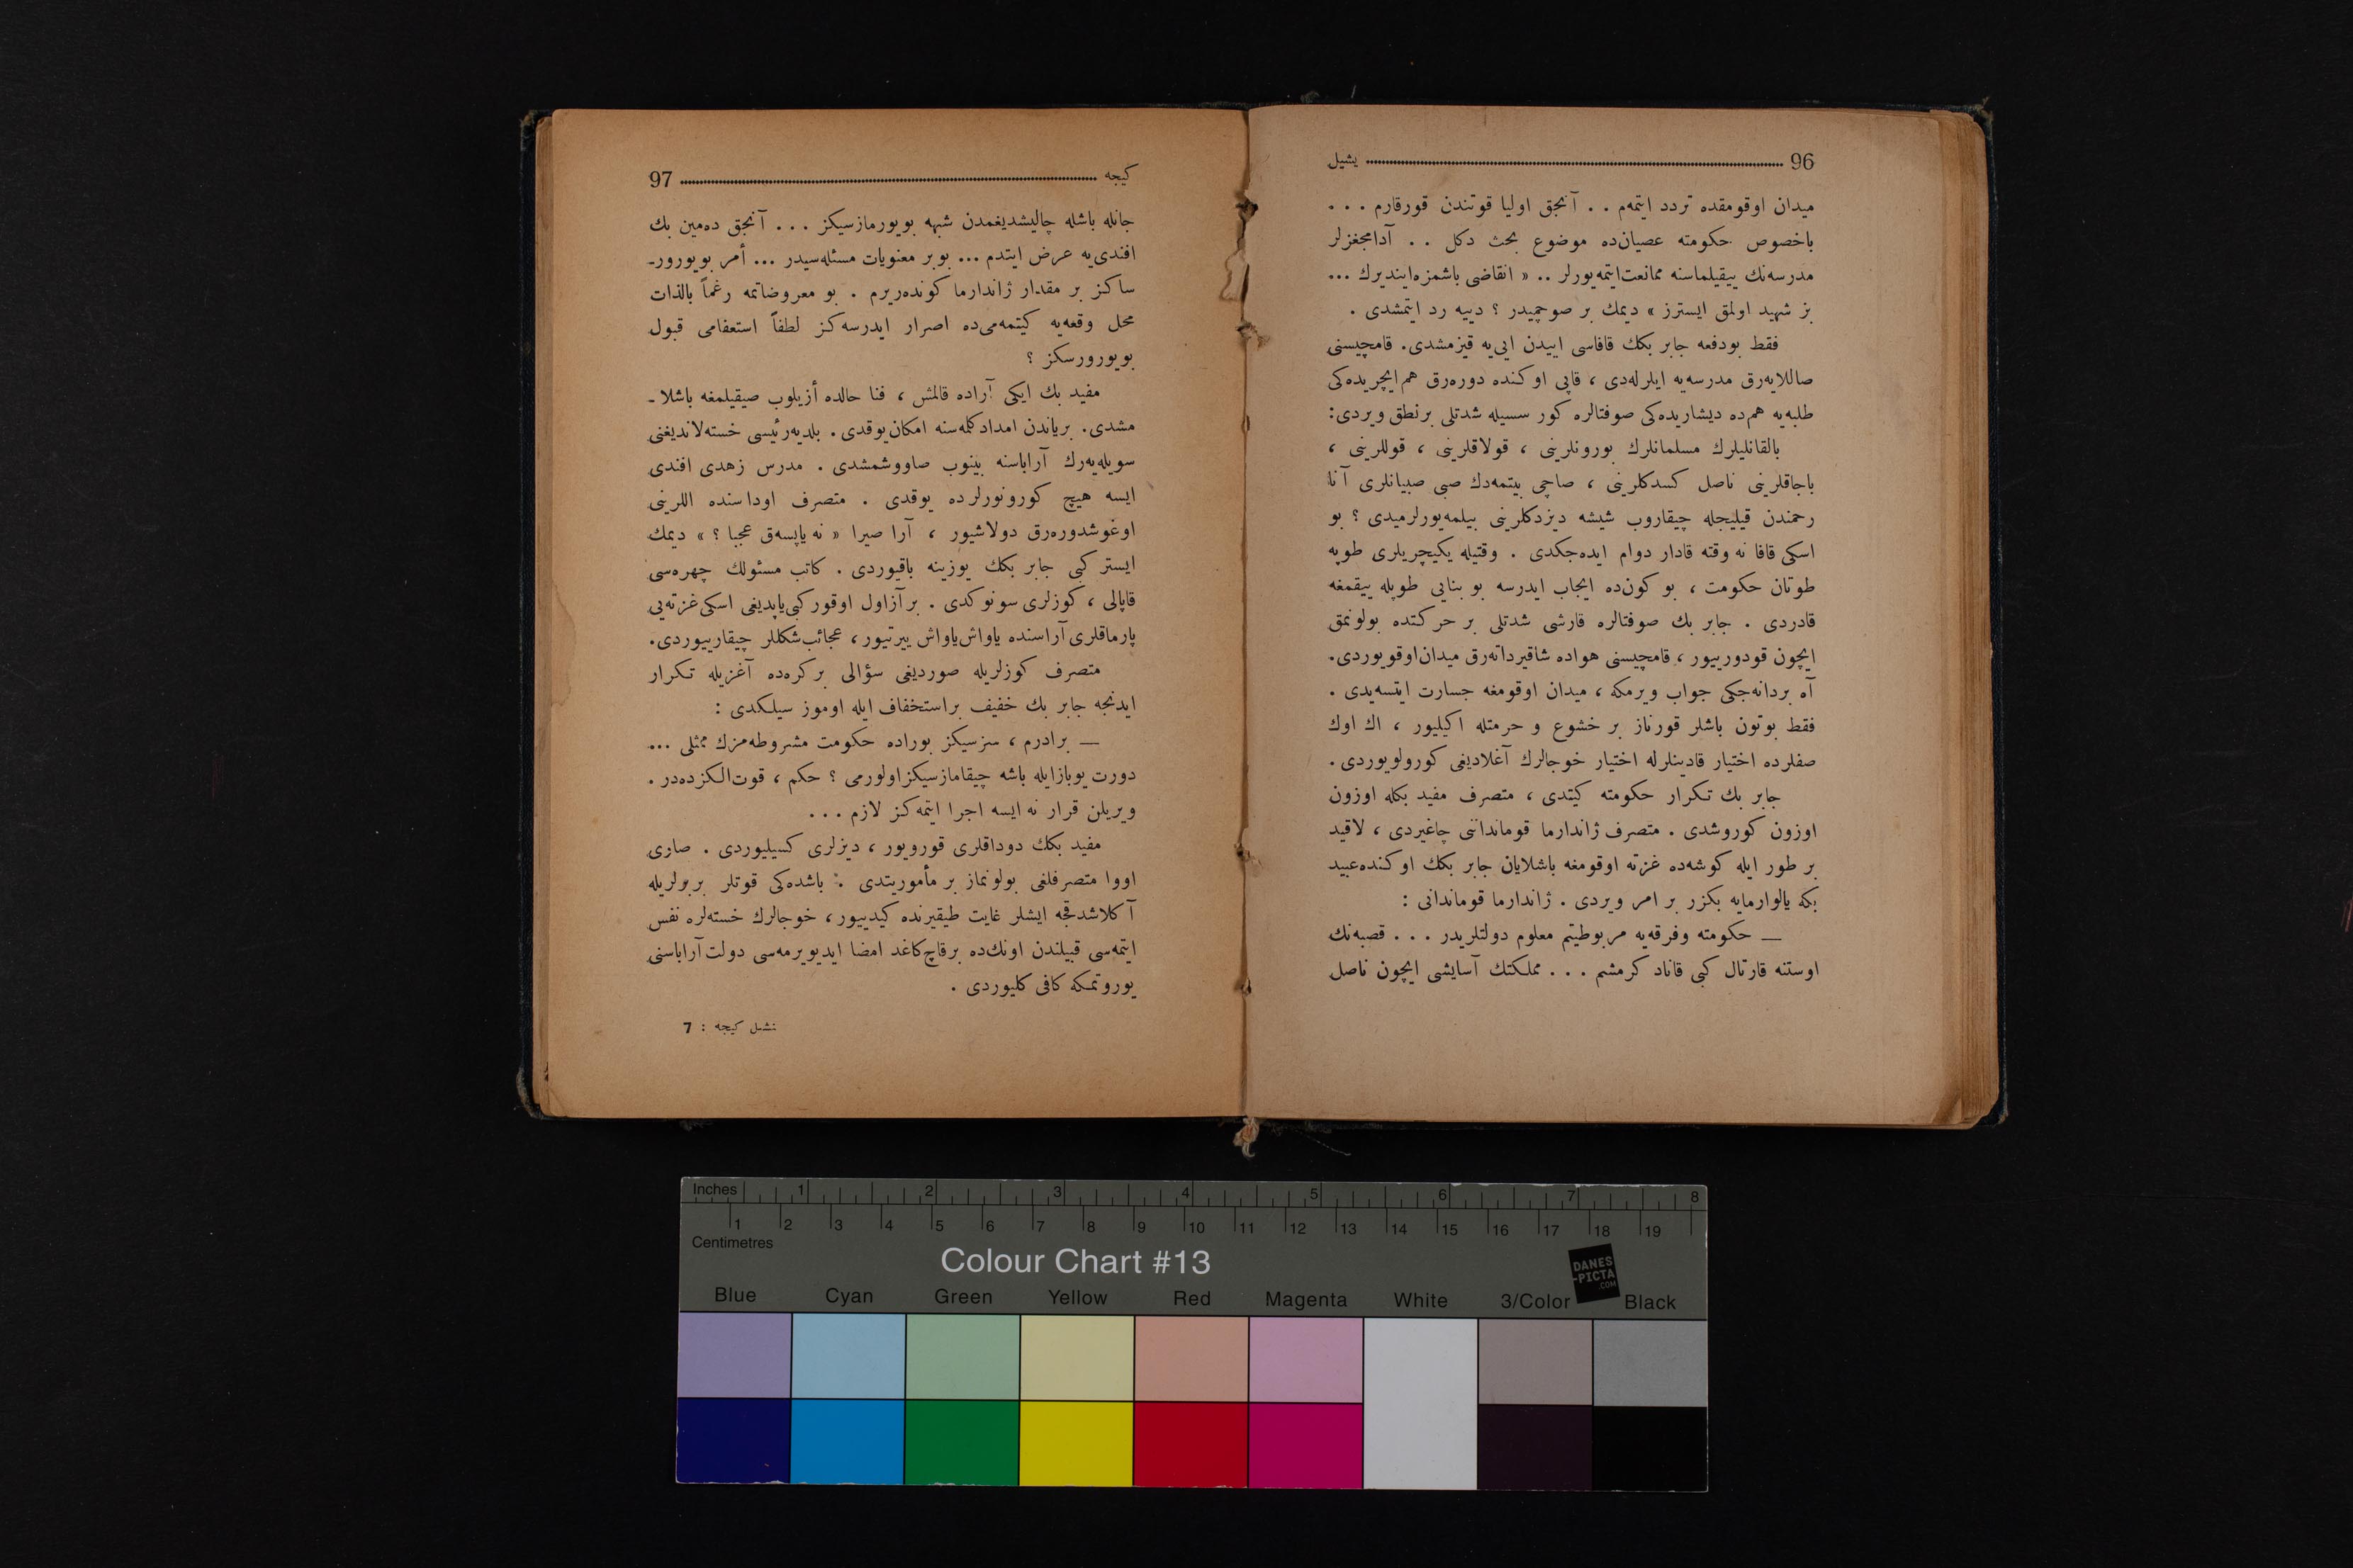 96 يشيل
ميدان اوقومقده تردد ايتمه‌م . . آنجق اوليا قوتندن قورقارم . . .
باخصوص حكومته عصيان‌ده موضوع بحث دكل . . آدامجغزلر
مدرسه‌نك ييقيلماسنه ممانعت‌ايتمه‌يورلر .. « انقاضى باشمزه‌اينديرك ...
بز شهيد اولمق ايسترز » ديمك بر صوچميدر ؟ دييه رد ايتمشدى .
فقط بودفعه جابر بكك قافاسى اييدن ايى‌يه قيزمشدى. قامچيسنى
صاللايه‌رق مدرسه‌يه ايلرله‌دى ، قاپى اوكنده دوره‌رق هم‌ايچريده‌كى
طلبه‌يه هم‌ده ديشاريده‌كى صوفتالره كور سسيله شدتلى برنطق ويردى:
بالقانليلرك مسلمانلرك بورونلرينى ، قولاقلرينى ، قوللرينى ،
باجاقلرينى ناصل كسدكلرينى ، صاچى بيتمه‌دك صبى صبيانلرى آنا
رحمندن قيليجله چيقاروب شيشه ديزدكلرينى بيلمه‌يورلرميدى ؟ بو
اسكى قافا نه وقته قادار دوام ايده‌جكدى . وقتيله يكيچريلرى طوپه
طوتان حكومت ، بو كون‌ده ايجاب ايدرسه بو بنايى طوپله ييقمغه
قادردى . جابر بك صوفتالره قارشى شدتلى بر حركتده بولونمق
ايچون قودورييور ، قامچيسنى هواده شاقيرداته‌رق ميدان‌اوقويوردى.
آه بردانه‌جكى جواب ويرمكه ، ميدان اوقومغه جسارت ايتسه‌يدى .
فقط بوتون باشلر قورناز بر خشوع و حرمتله اكيليور ، اك اوك
صفلرده اختيار قادينلرله اختيار خوجالرك آغلاديغى كورولويوردى.
جابر بك تكرار حكومته كيتدى ، متصرف مفيد بكله اوزون
اوزون كوروشدى . متصرف ژاندارما قوماندانى چاغيردى ، لاقيد
بر طور ايله كوشه‌ده غزته اوقومغه باشلايان جابر بكك اوكنده‌عبيد
بكه يالوارمايه بكزر بر امر ويردى . ژاندارما قوماندانى :
— حكومته وفرقه‌يه مربوطيتم معلوم دولتلريدر . . . قصبه‌نك
اوستنه قارتال كبى قاناد كرمشم . . . مملكتك آسايشى ايچون ناصل
كيجه 97
جانله باشله چاليشديغمدن شبهه بويورمازسيكز . . . آنجق ده‌مين بك
افندى‌يه عرض ايتدم ... بوبر معنويات مسئله‌سيدر ... أمر بويورور-
ساكز بر مقدار ژاندارما كونده‌ريرم . بو معروضاتمه رغماً بالذات
محل وقعه‌يه كيتمه‌مى‌ده اصرار ايدرسه‌كز لطفاً استعفامى قبول
بويورورسكز ؟
مفيد بك ايكى آراده قالمش ، فنا حالده أزيلوب صيقيلمغه باشلا-
مشدى. برياندن امدادكلمه‌سنه امكان‌يوقدى. بلديه‌رئيسى خسته‌لانديغنى
سويله‌يه‌رك آراباسنه بينوب صاووشمشدى . مدرس زهدى افندى
ايسه هيچ كورونورلرده يوقدى . متصرف اوداسنده اللرينى
اوغوشدوره‌رق دولاشيور ، آرا صيرا « نه ياپسه‌ق عجبا ؟ » ديمك
ايستر كبى جابر بكك يوزينه باقيوردى . كاتب مسئولك چهره‌سى
قاپالى ، كوزلرى سونوكدى . برآزاول اوقوركبى‌ياپديغى اسكى‌غزته‌يى
پارماقلرى‌آراسنده ياواش‌ياواش ييرتيور، عجائب‌شكللر چيقارييوردى.
متصرف كوزلريله صورديغى سؤالى بركره‌ده آغزيله تكرار
ايدنجه جابر بك خفيف براستخفاف ايله اوموز سيلكدى :
— برادرم ، سزسيكز بوراده حكومت مشروطه‌مزك ممثلى ...
دورت يوبازايله باشه چيقامازسيكزاولورمى ؟ حكم ، قوت‌الكزده‌در .
ويريلن قرار نه ايسه اجرا ايتمه‌كز لازم . . .
مفيد بكك دوداقلرى قورويور ، ديزلرى كسيليوردى . صارى
اووا متصرفلغى بولونماز بر مأموريتدى . باشده‌كى قوتلر بربرلريله
آكلاشدقجه ايشلر غايت طيقيرنده كيدييور، خوجالرك خسته‌لره نفس
ايتمه‌سى قبيلندن اونك‌ده برقاچ‌كاغد امضا ايديويرمه‌سى دولت‌آراباسنى
يوروتمكه كافى كليوردى .
يشيل كيجه : 7
Inches 1 2 3 4 5 6 7 8
1 2 3 4 5 6 7 8 9 10 11 12 13 14 15 16 17 18 19
Centimetres
Colour Chart #13
DANES
-PICTA
.COM
Blue Cyan Green Yellow Red Magenta White 3/Color Black